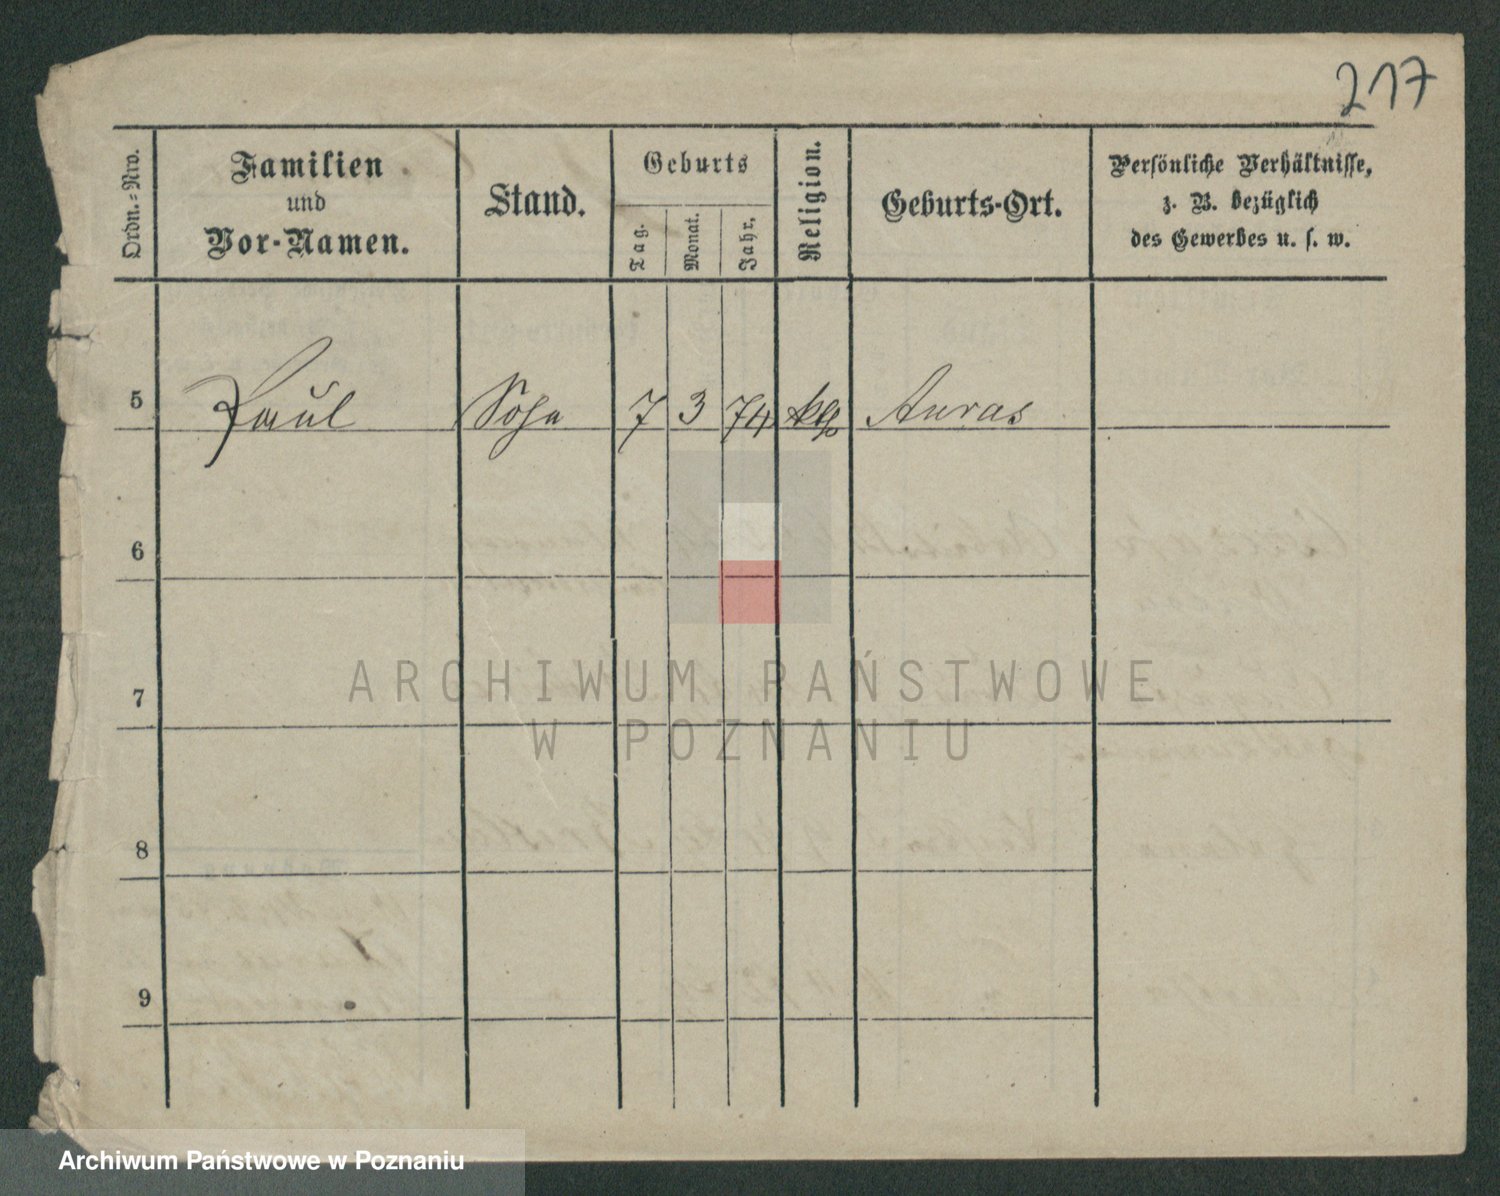 217
Ordn.-Nro.
Familien
und
Vor-Namen.
Stand.
Geburts
Tag.
Monat.
Jahr.
Religion.
Geburts-Ort.
Persönliche Verhältnisse,
z. B. bezüglich
des Gewerbes u. s. w.
5 Paul Sohn 7 3 74 Auras
6
7
8
9
ARCHIWUM PAŃSTWOWE
W POZNANIU
Archiwum Państwowe w Poznaniu